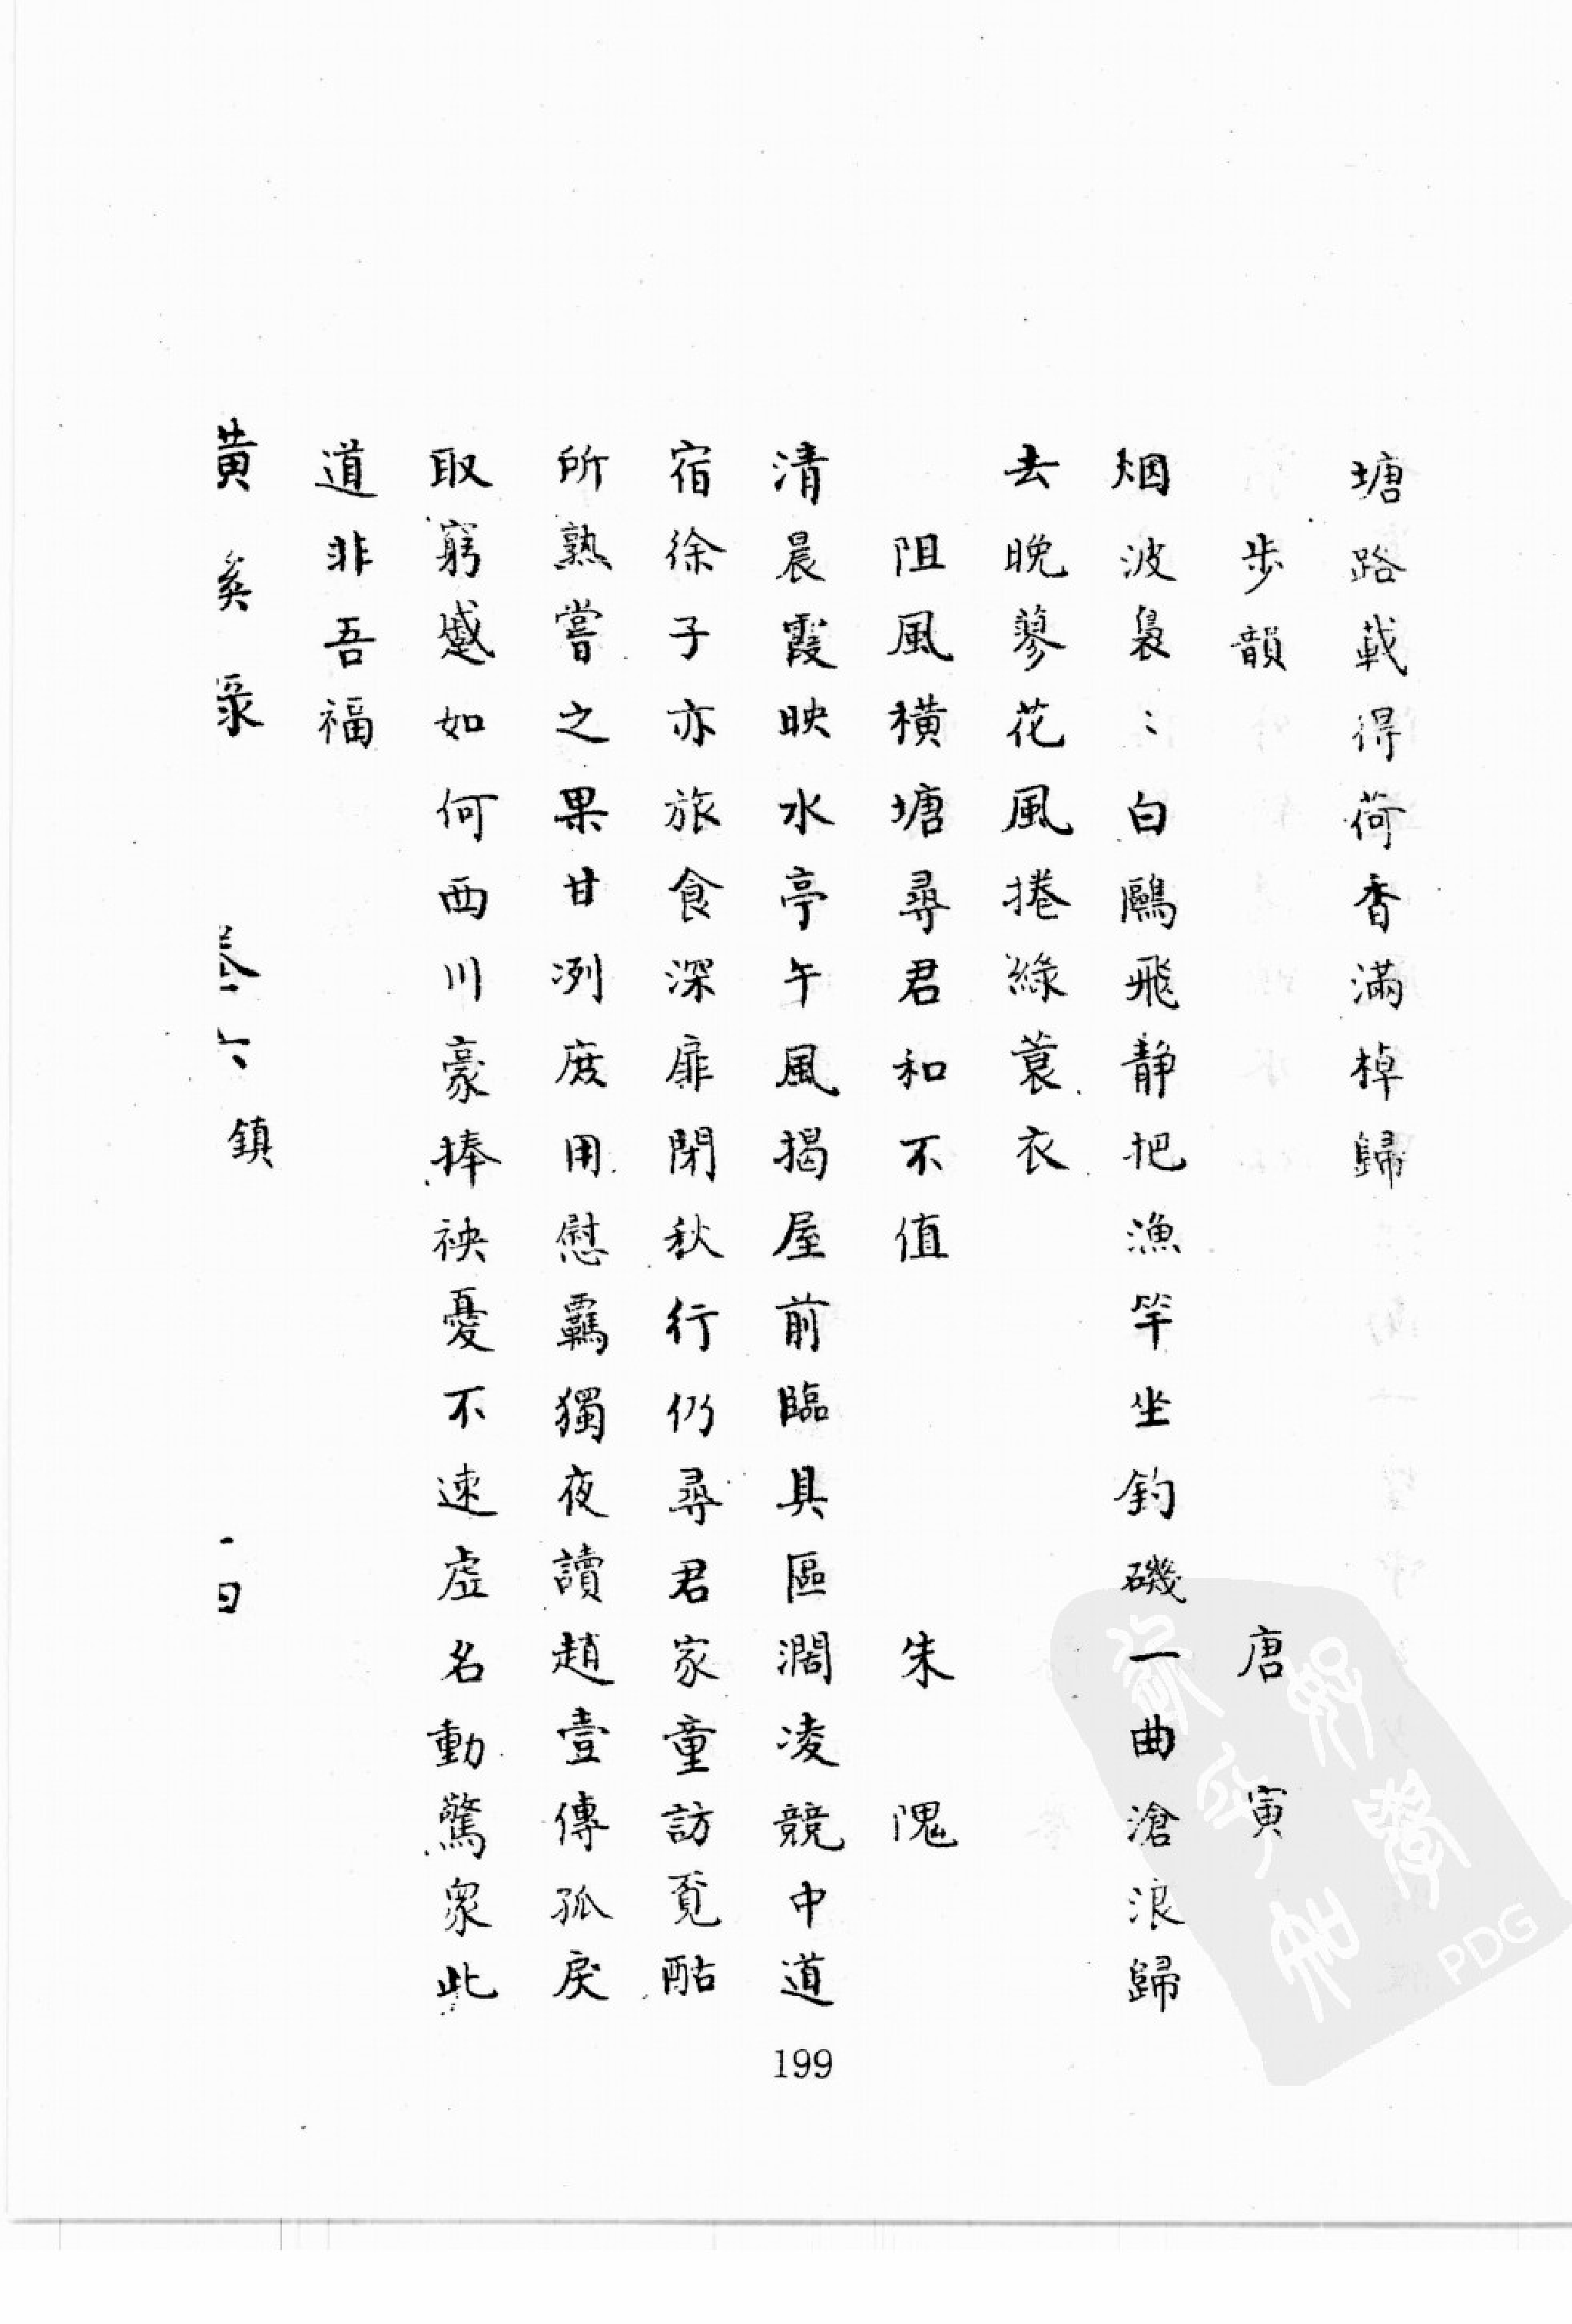 塘路載得荷香滿棹歸
步韻 唐寅
烟波裊〻白鷗飛静把漁竿坐釣磯一曲滄浪歸
去晚蓼花風捲綠蓑衣
阻風橫塘尋君和不值 朱隗
清晨霞映水亭午風揭屋前臨具區濶凌競中道
宿徐子亦旅食深扉閉秋行仍尋君家童訪覓酤
所熟嘗之果甘冽庶用慰羈獨夜讀趙壹傳孤戾
取窮蹙如何西川豪捧袂憂不速虛名動驚眾此
道非吾福
黄 卷六 鎮
199
PDG